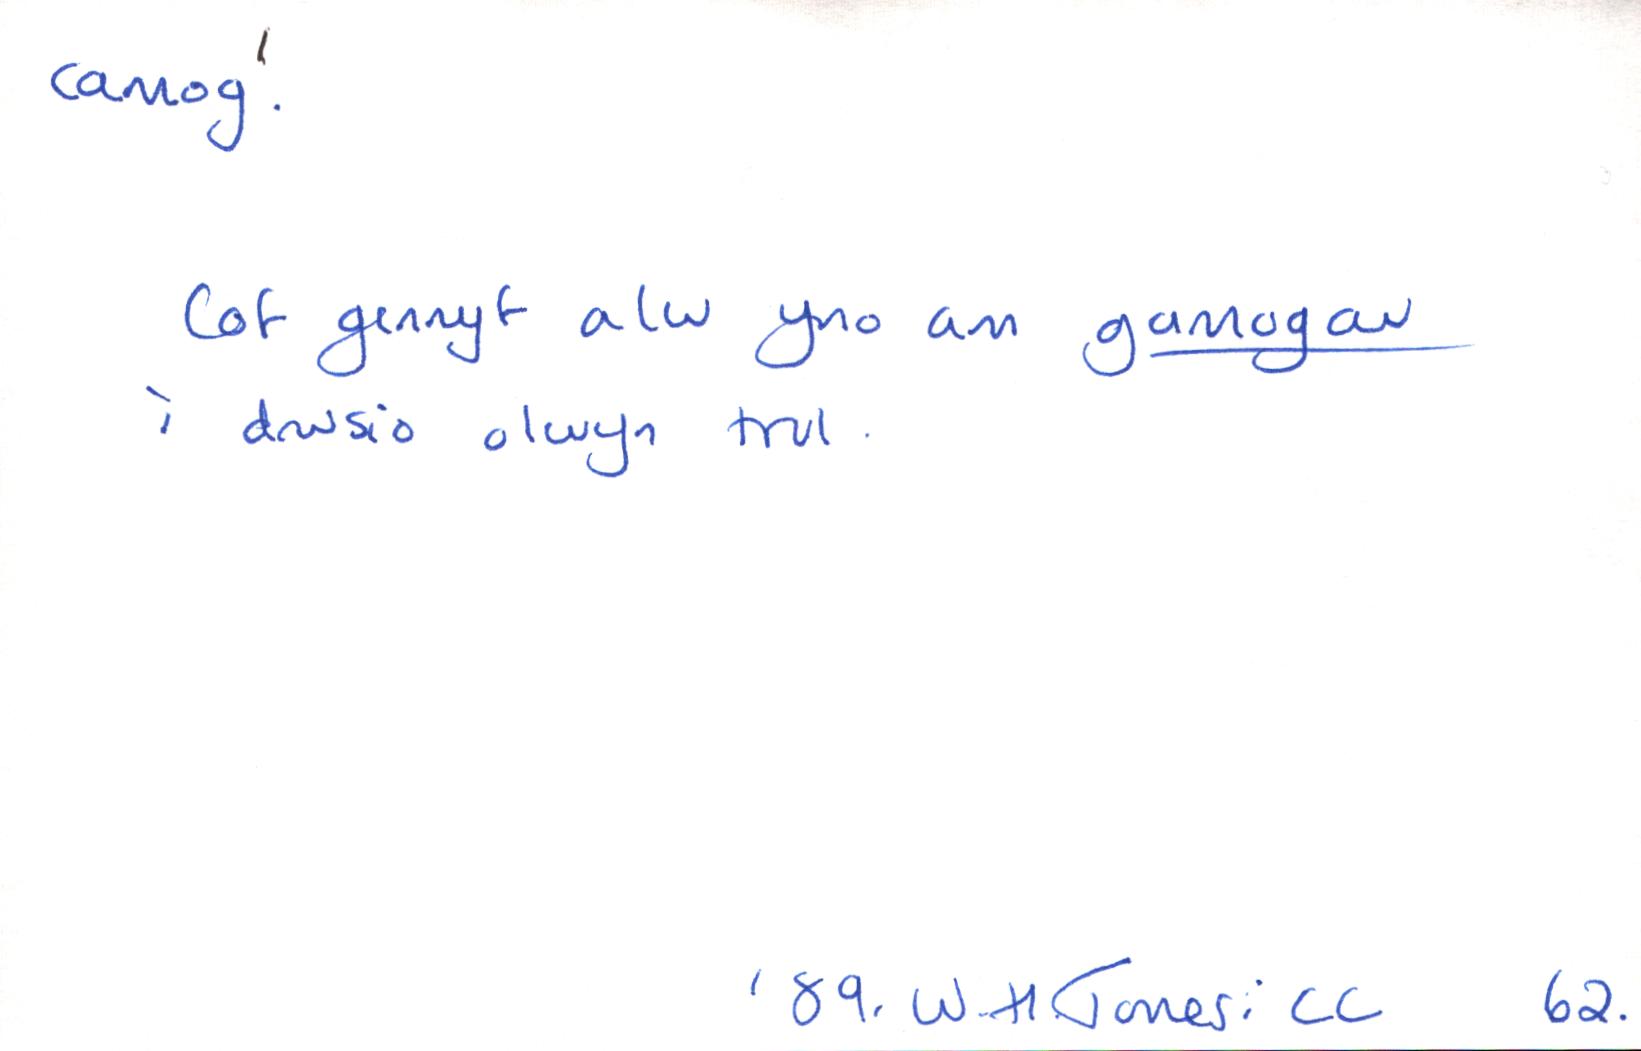 camog¹.
Cof gennyf alw yno am gamogau
i drwsio olwyn trol.
'89. W. H Jones: CC 62.